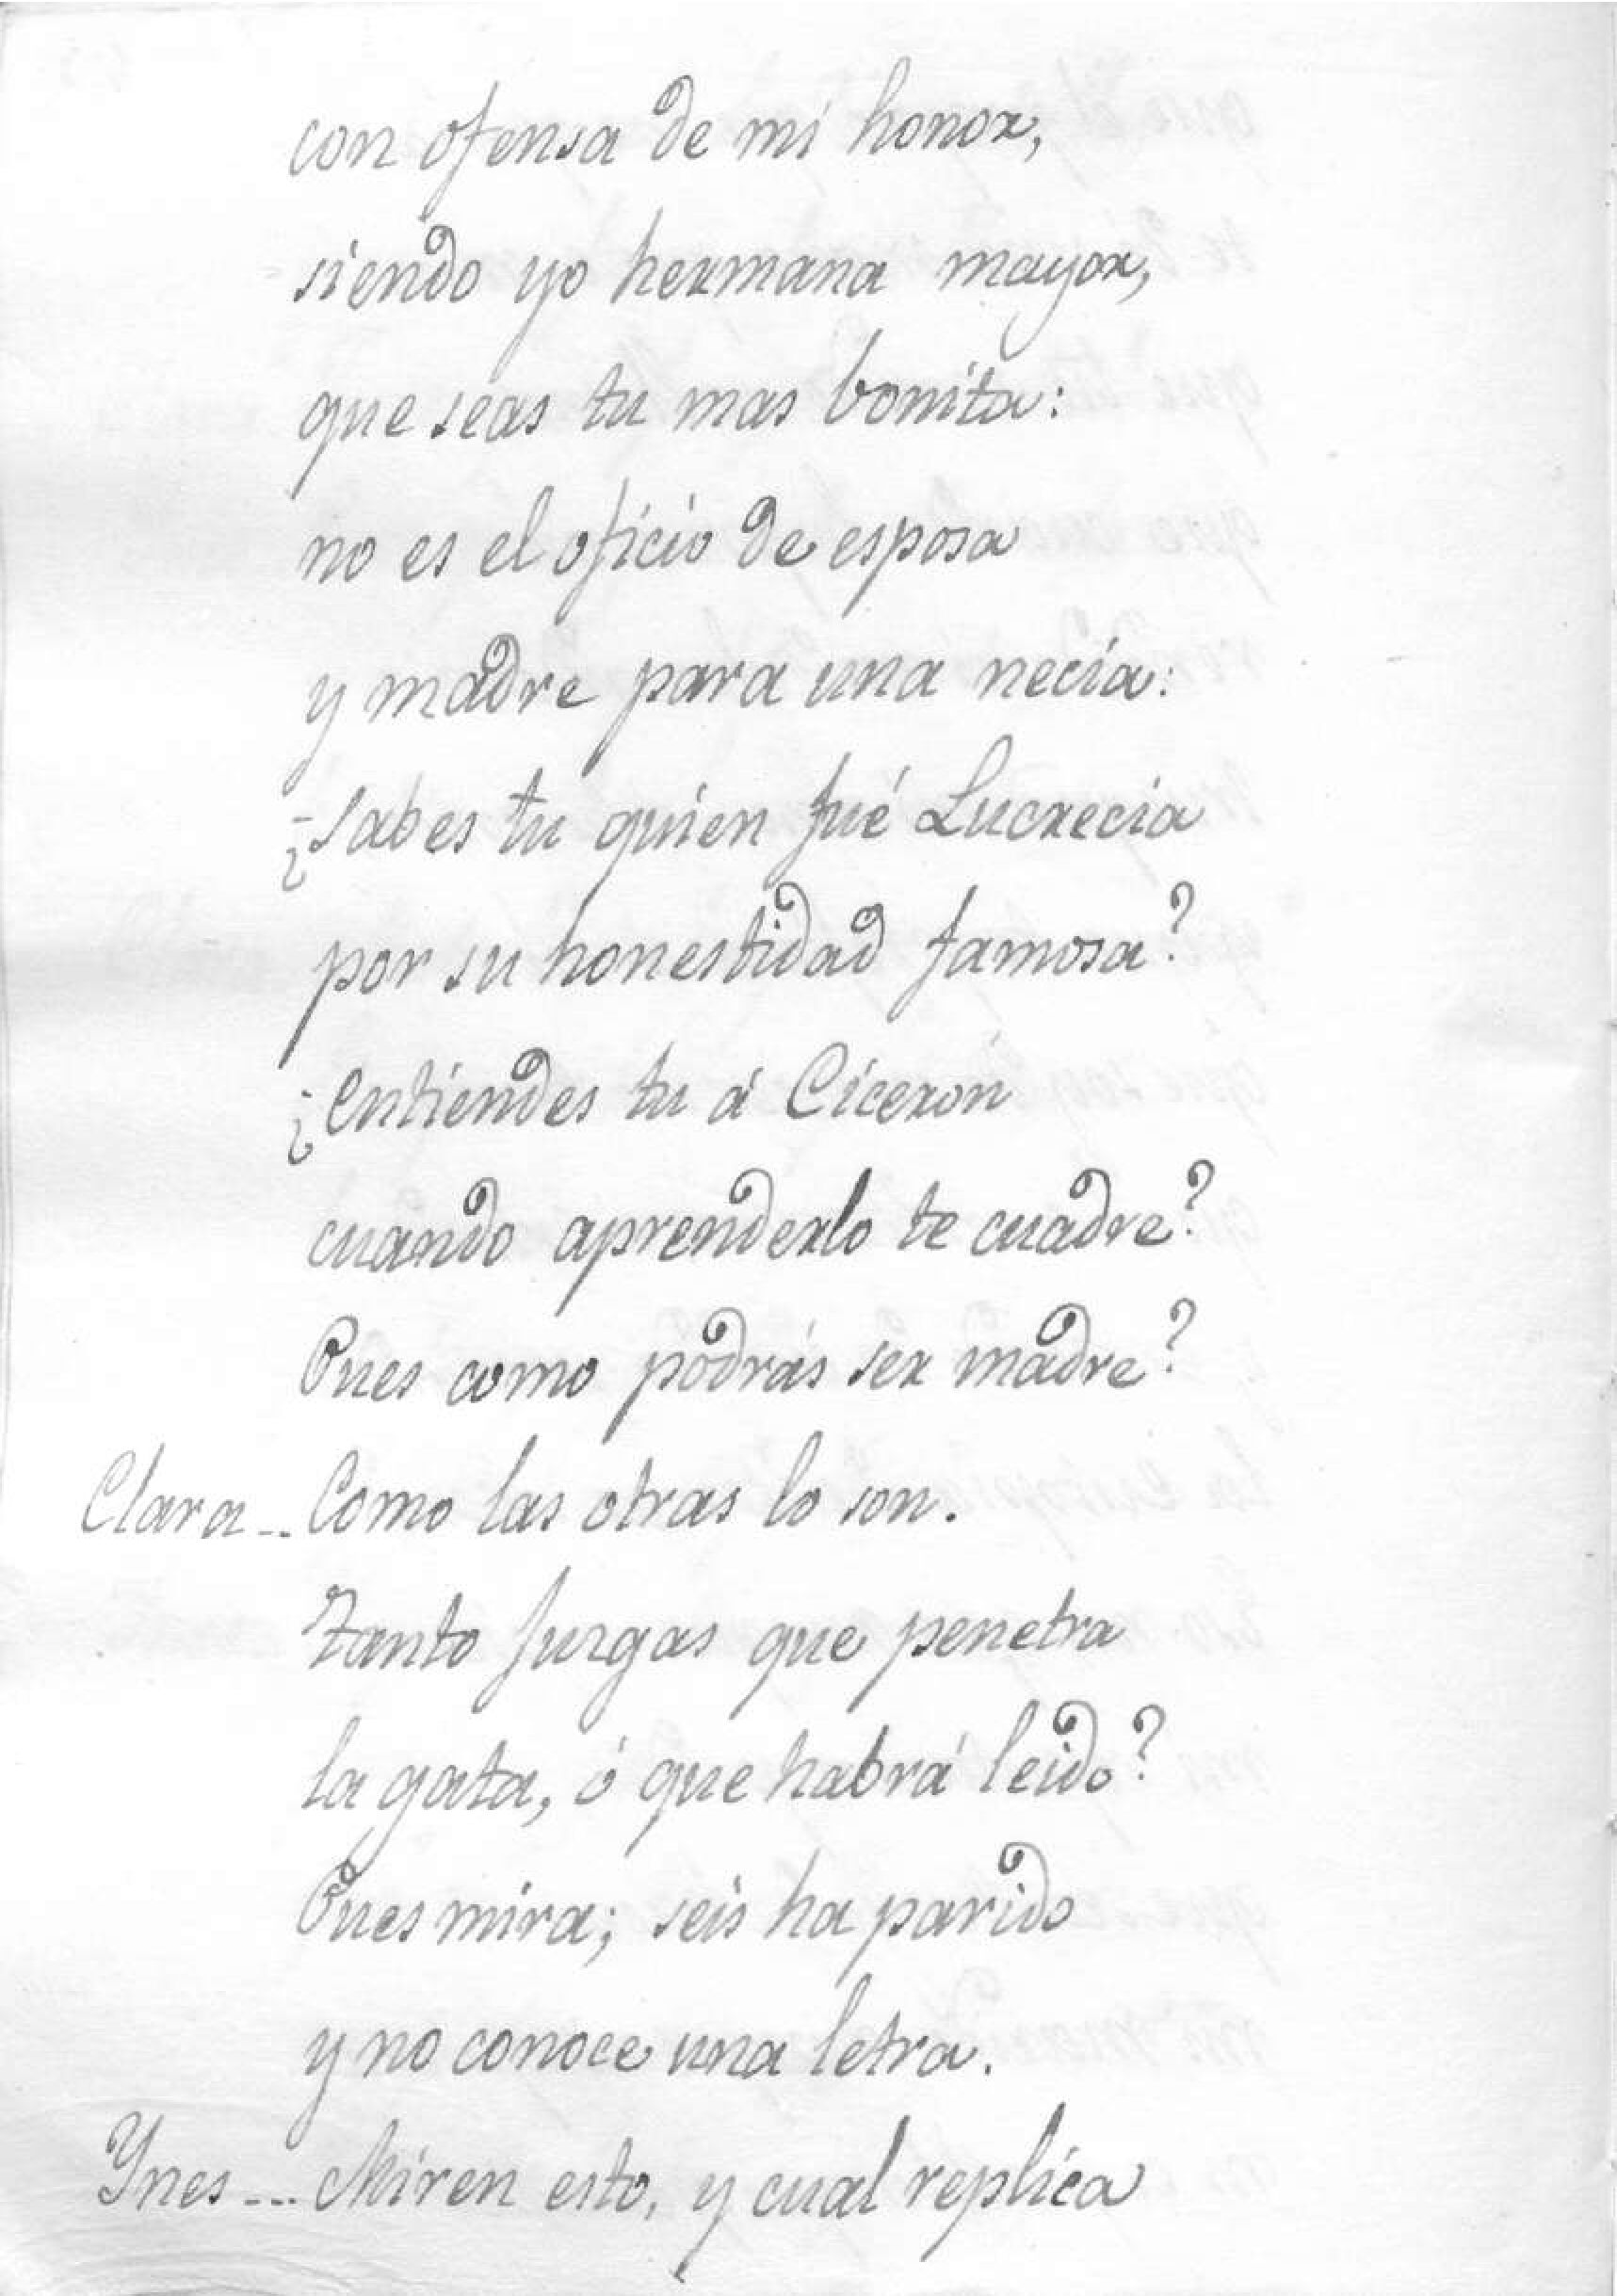 con ofensa de mi honor,
siendo yo hermana mayor,
que seas tu mas bonita:
no es el oficio de esposa
y madre para una necia:
¿Sabes tu quien fué Lucrecia
por su honestidad famosa?
¿Entiendes tu á Cicerón
cuando aprenderlo te cuadre?
Pues como podrás ser madre?
Clara... Como las otras lo son.
Tanto juzgas que penetra
la gata, ó que habrá leido?
Pues mira; seis ha parido
y no conoce una letra.
Ynes... Miren esto, y cual replica